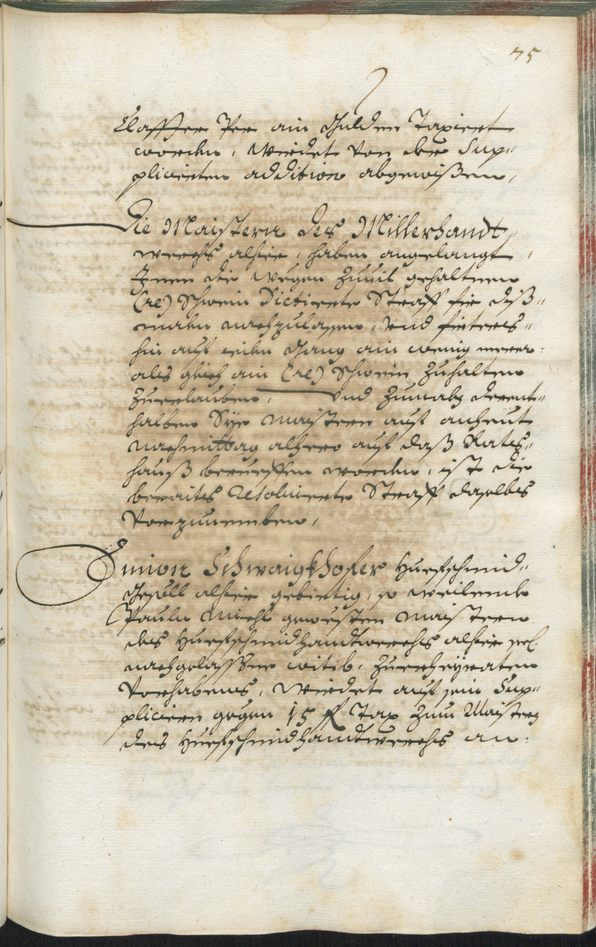 75
Claffter Per ain Gulden Taxiert
worden, würdet von der Sup-
plicierten addition abgewißen,
Die Maistern des Millerhandt
werchs alhie, haben angelangt,
Inen die wegen Zuuil gehaltnen
(re) Schwein Dictierte Straff für diß-
mahl nachzulassen, und
hin auf ain wenig mehrer
als ain (re) Schwein Zuhalten
Zuerlauben, Und Zumahl
halben Sye Maistern auf anheut
nachmittag alhero auf daß Rats-
hauß berueffen worden, ist die
beraits resoluierte Straff daselbs
Vorzunemben,
Simon Schwaigkhofer Huefschmid-
Gesöll alhie gebürtig, so weilende
Pauln gewesten Maistern
des Huefschmidhandtwerchs alhie sel.
nachgelassene witib, Zuuerheyraten
Vorhabens, würdet auf sein Sup-
plicieren gegen 15 fl Tax Zum Maister
des Huefschmidhandtwerchs an-